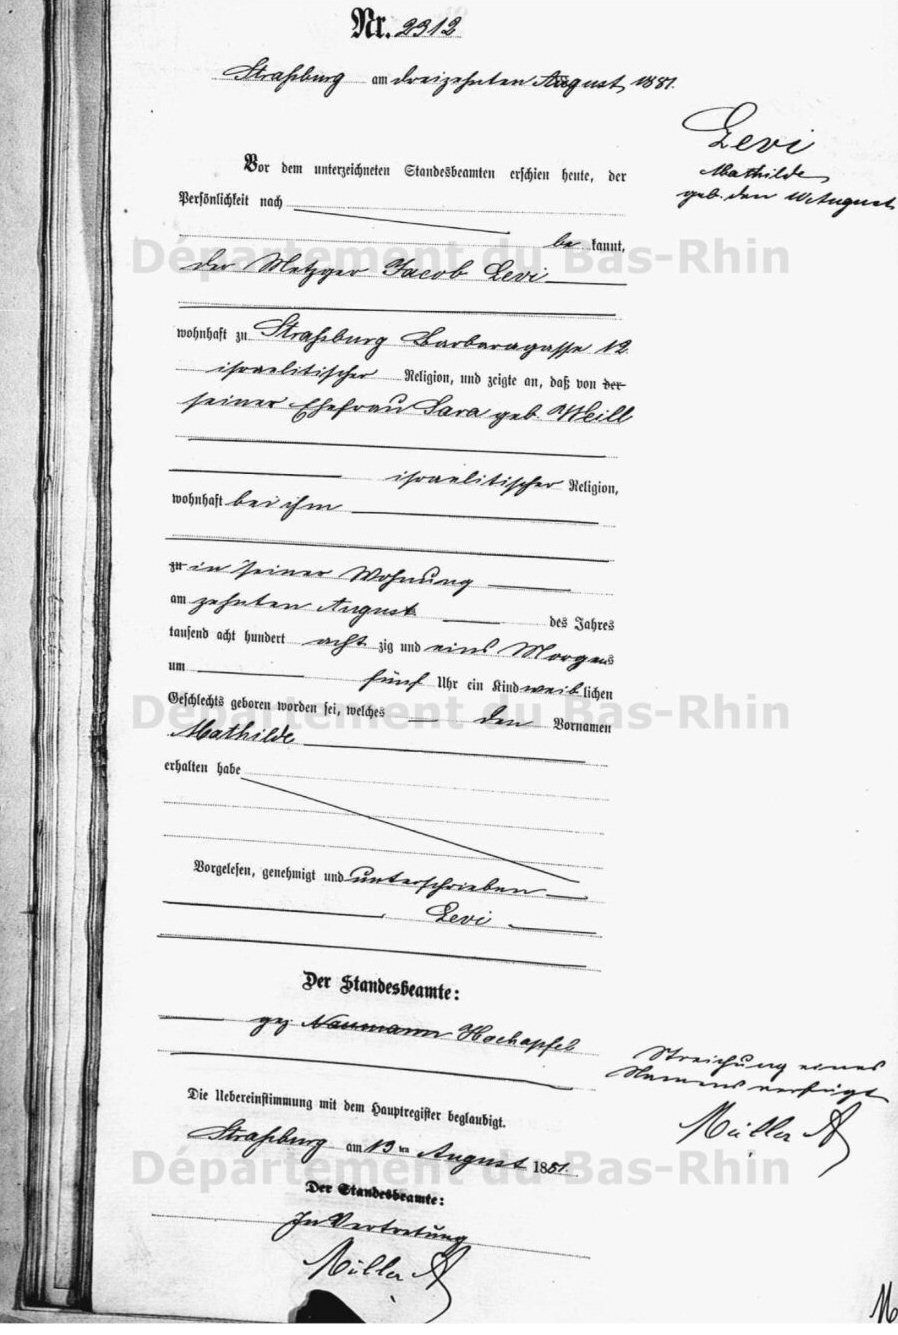 Nr. 2312
Straßburg am dreizehnten August 1881.
Levi
Mathilde
geb. den 10. August
Vor dem unterzeichneten Standesbeamten erschien heute, der
Persönlichkeit nach
be kannt,
der Metzger Jacob Levi
wohnhaft zu Straßburg Barbaragasse 12
israelitischer Religion, und zeigte an, daß von der
seiner Ehefrau Sara geb. Weill
israelitischer Religion,
wohnhaft bei ihm
zu in seiner Wohnung
am zehnten August des Jahres
tausend acht hundert acht zig und eins Morgens
um fünf Uhr ein Kind weib lichen
Geschlechts geboren worden sei, welches den Vornamen
Mathilde
erhalten habe
Vorgelesen, genehmigt und unterschrieben
Levi
Der Standesbeamte:
gez Naumann Hochapfel
Streichung eines
Namens verfügt
Müller
Die Uebereinstimmung mit dem Hauptregister beglaubigt.
Straßburg am 13ten August 1881.
Der Standesbeamte:
In Vertretung
Müller
Département du Bas-Rhin
Département du Bas-Rhin
Département du Bas-Rhin